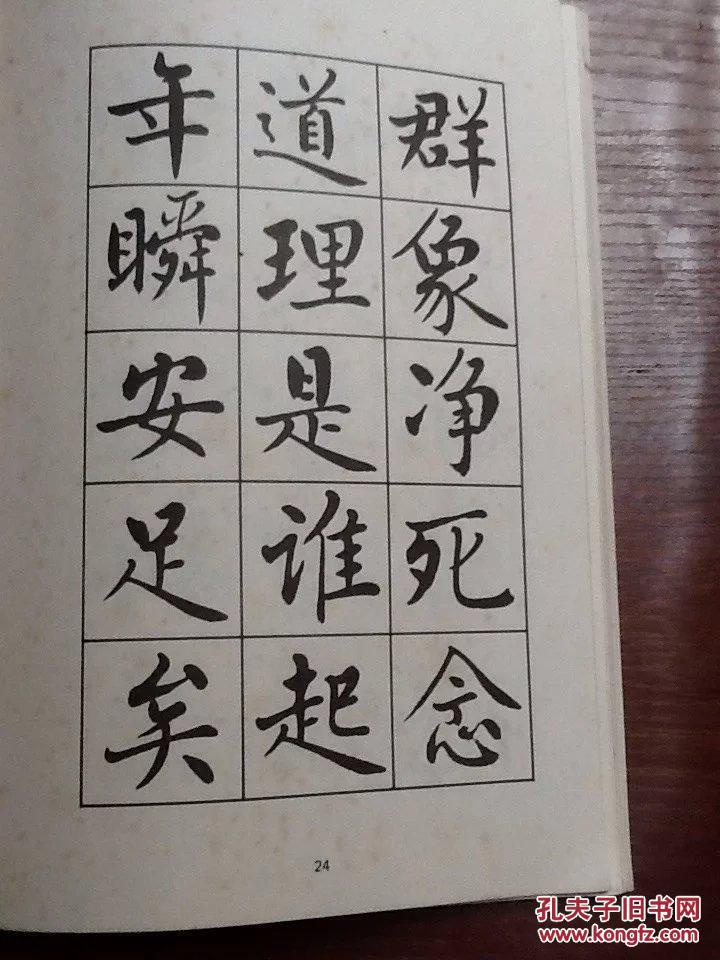 群象净死念
道理是谁起
年瞬安足矣
24
孔夫子旧书网
www.kongfz.com